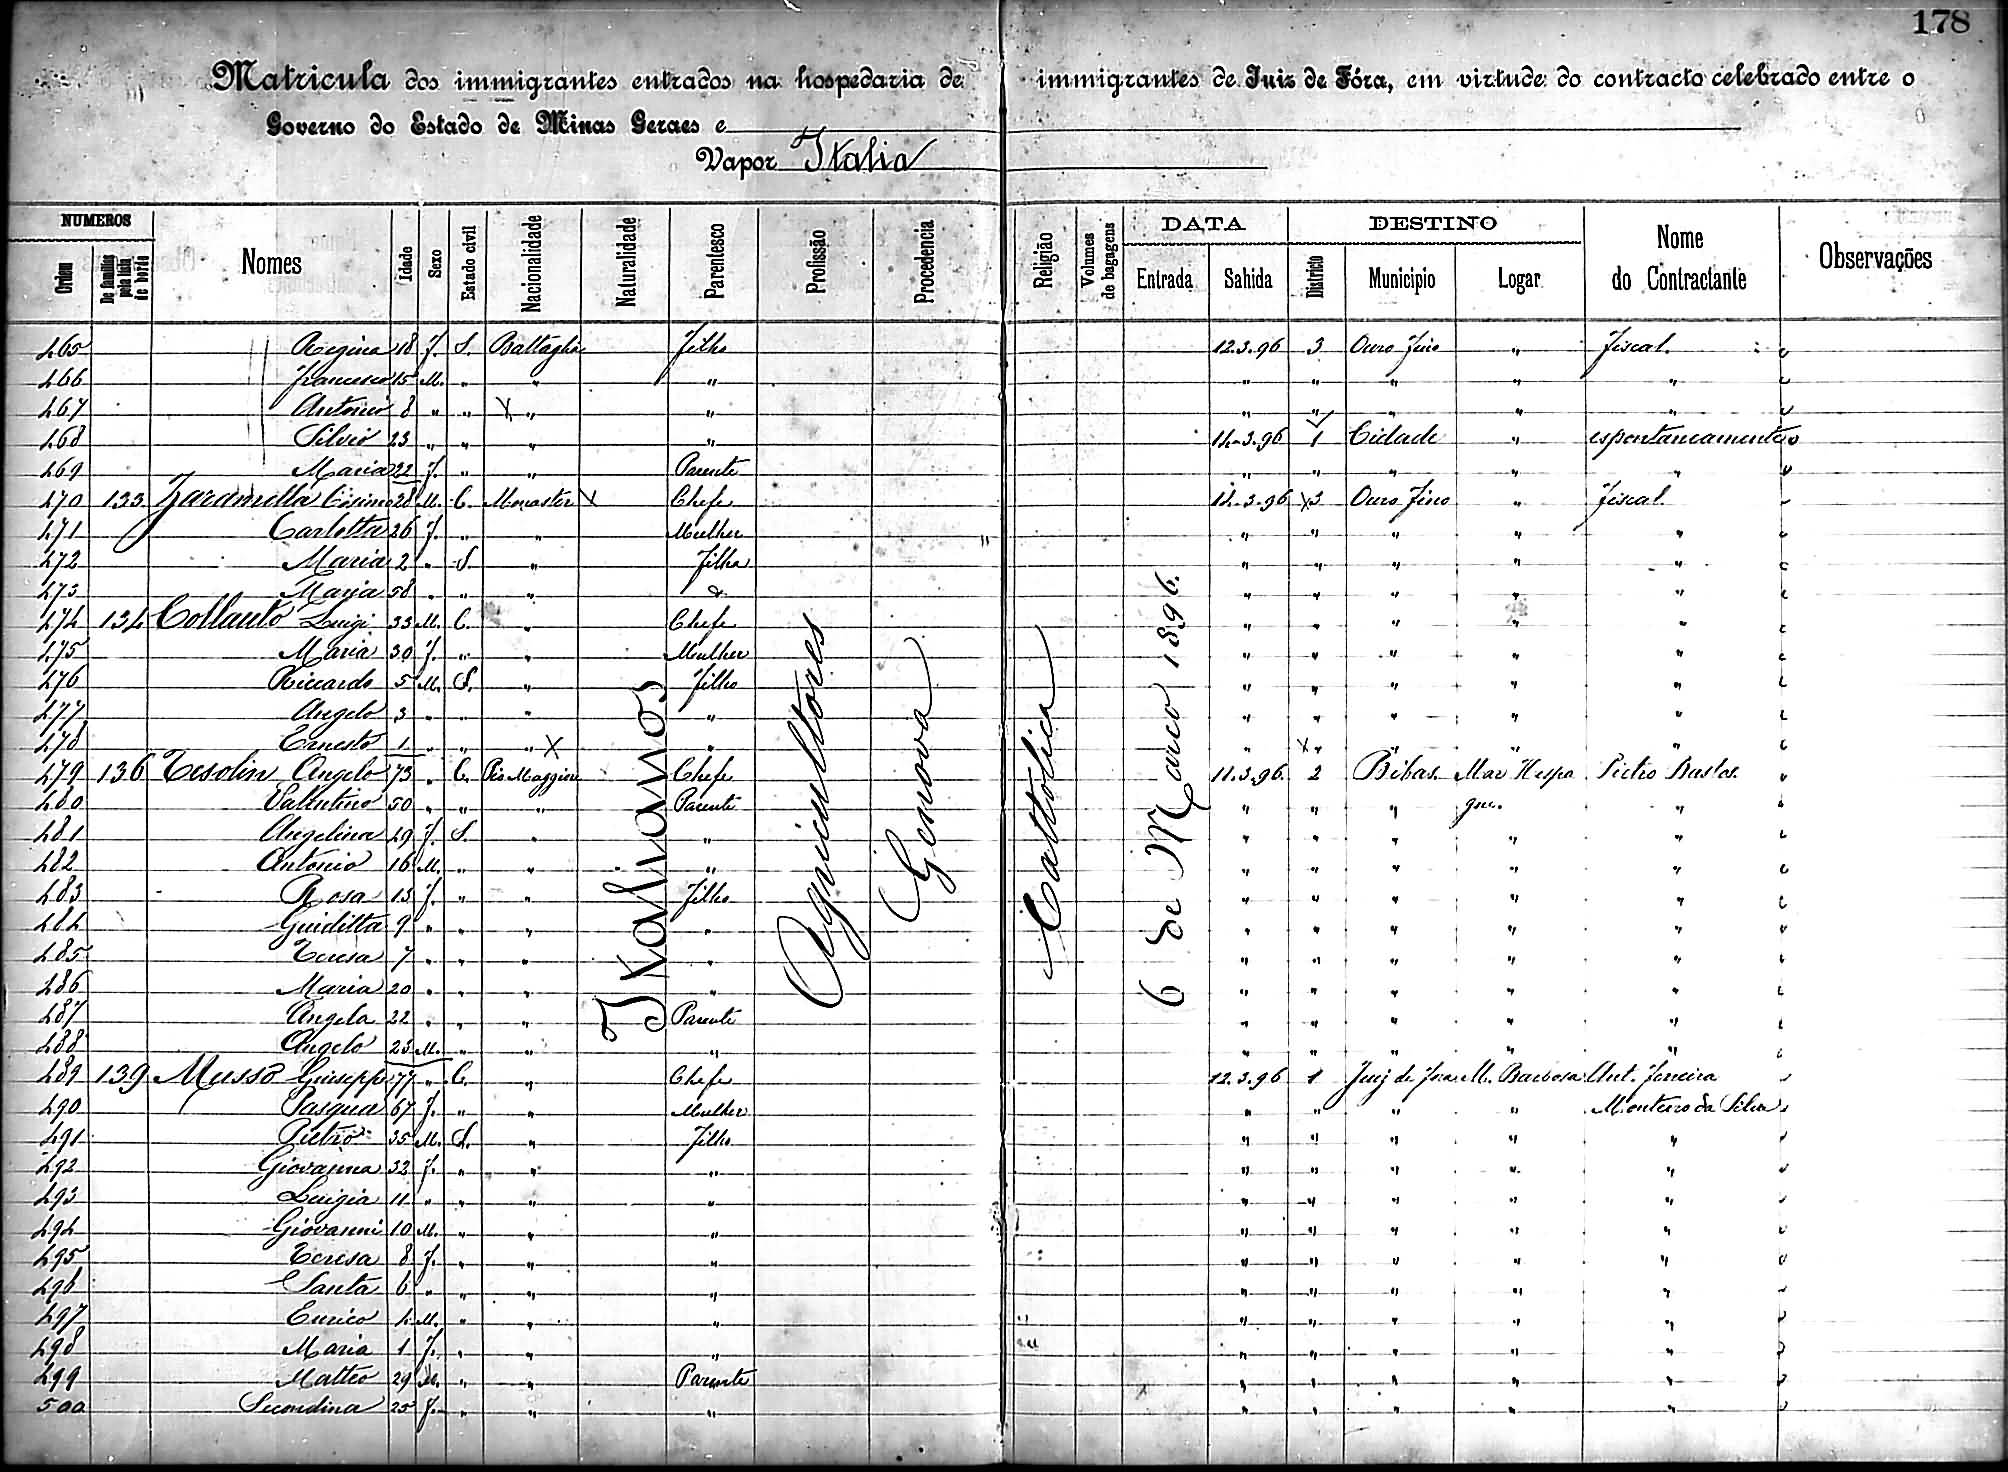 178
Matricula dos immigrantes entrados na hospedaria de immigrantes de Juiz de Fóra, em virtude do contracto celebrado entre o
Governo do Estado de Minas Geraes e
Vapor Italia
NUMEROS DATA DESTINO
Ordem De familias pela lista de bordo Nomes Idade Sexo Estado civil Nacionalidade Naturalidade Parentesco Profissão Procedencia Religião Volumes de bagagens Entrada Sahida Districto Municipio Logar Nome do Contractante Observações
Italianos
Agricultores
Genova
Cattolica
6 de Marco 1896.
465 Regina 18 f. S. Battaglia Filho 12.3.96 3 Ouro Fino " Fiscal.
466 Francesco 15 M. " " " " " " " "
467 Antonio 8 " " X " " " " " " "
468 Silvio 23 " " " " 14.3.96 1 Cidade " espontaneamente
469 Maria 22 f. " " Parente " " " " "
470 133 Zaramella Cisimo 28 M. C. Monaster X Chefe 14.3.96 X3 Ouro Fino " Fiscal
471 Carlotta 26 f. " " Mulher " " " " "
472 Maria 2 " S. " Filha " " " " "
473 Maria 58 " " " " " " " "
474 134 Collauto Luigi 33 M. C. " Chefe " " " " "
475 Maria 30 f. " " Mulher " " " " "
476 Riccardo 5 M. S. " Filho " " " " "
477 Angelo 3 " " " " " " " " "
478 Ernesto 1 " " " X " " X " " " "
479 136 Tesolin Angelo 73 " C. Rio Maggiore Chefe 11.3.96. 2 Bibas. Mar Hespa Pietro Bastos.
480 Vallentino 50 " " " Parente " " " gne. "
481 Angelina 49 f. S. " " " " " " "
482 Antonio 16 M. " " " " " " " "
483 Rosa 13 f. " " Filho " " " " "
484 Guiditta 9 " " " " " " " " "
485 Teresa 7 " " " " " " " " "
486 Maria 20 " " " " " " " " "
487 Angela 22 " " " Parente " " " " "
488 Angelo 23 M. " " " " " " " "
489 139 Musso Giuseppe 77 " C. " Chefe 12.3.96 1 Juiz de Fora M. Barbosa Ant. Ferreira
490 Pasqua 67 f. " " Mulher " " " " Monteiro da Silva
491 Pietro 35 M. S. " Filho " " " " "
492 Giovanna 32 f. " " " " " " " "
493 Luigia 11 " " " " " " " " "
494 Giovanni 10 M. " " " " " " " "
495 Teresa 8 f. " " " " " " " "
496 Santa 6 " " " " " " " " "
497 Enrico 4 M. " " " " " " " "
498 Maria 1 f. " " " " " " " "
499 Matteo 29 M. " " Parente " " " " "
500 Secondina 25 f. " " " " " " " "